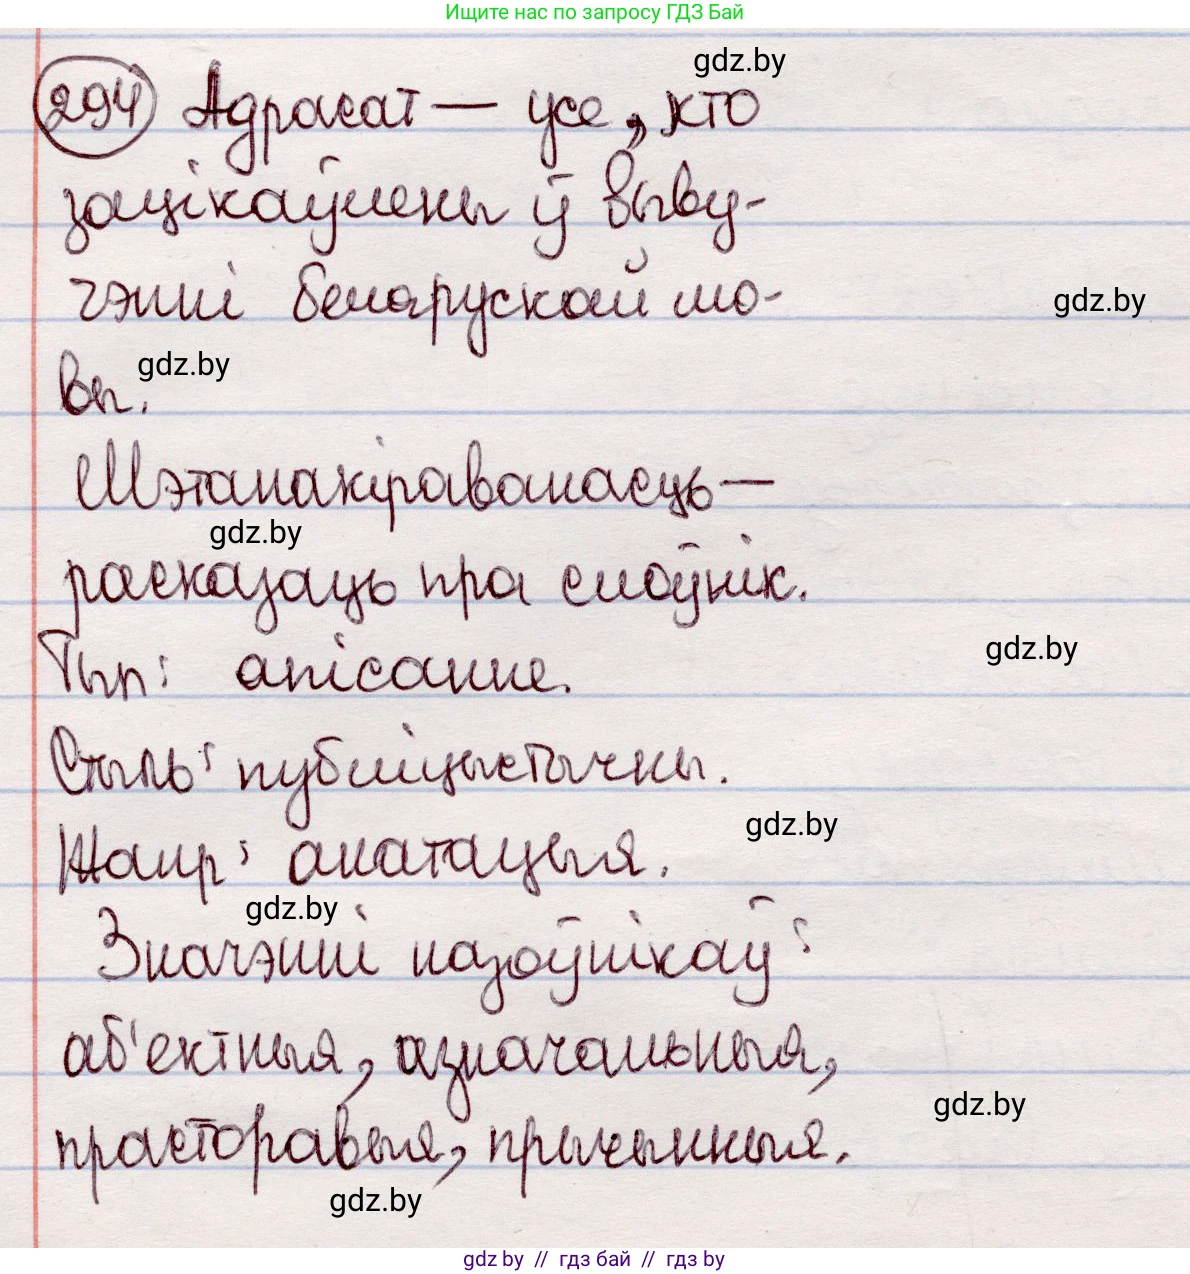 Ищите нас по запросу ГДЗ Бай
gdz.by
294 Адрасат — усе, кто
зацікаўлены ў выву-
чэнні беларускай мо-
gdz.by
вы.
gdz.by
Мэтанакіраванасць —
gdz.by
расказаць пра слоўнік.
Тып: апісанне.
gdz.by
Стыль: публіцыстычны.
gdz.by
Жанр: анатацыя.
gdz.by
Значэнні назоўнікаў:
аб'ектныя, азначальныя,
gdz.by
прасторавыя, прычынныя.
gdz.by
gdz by // гдз бай // гдз by